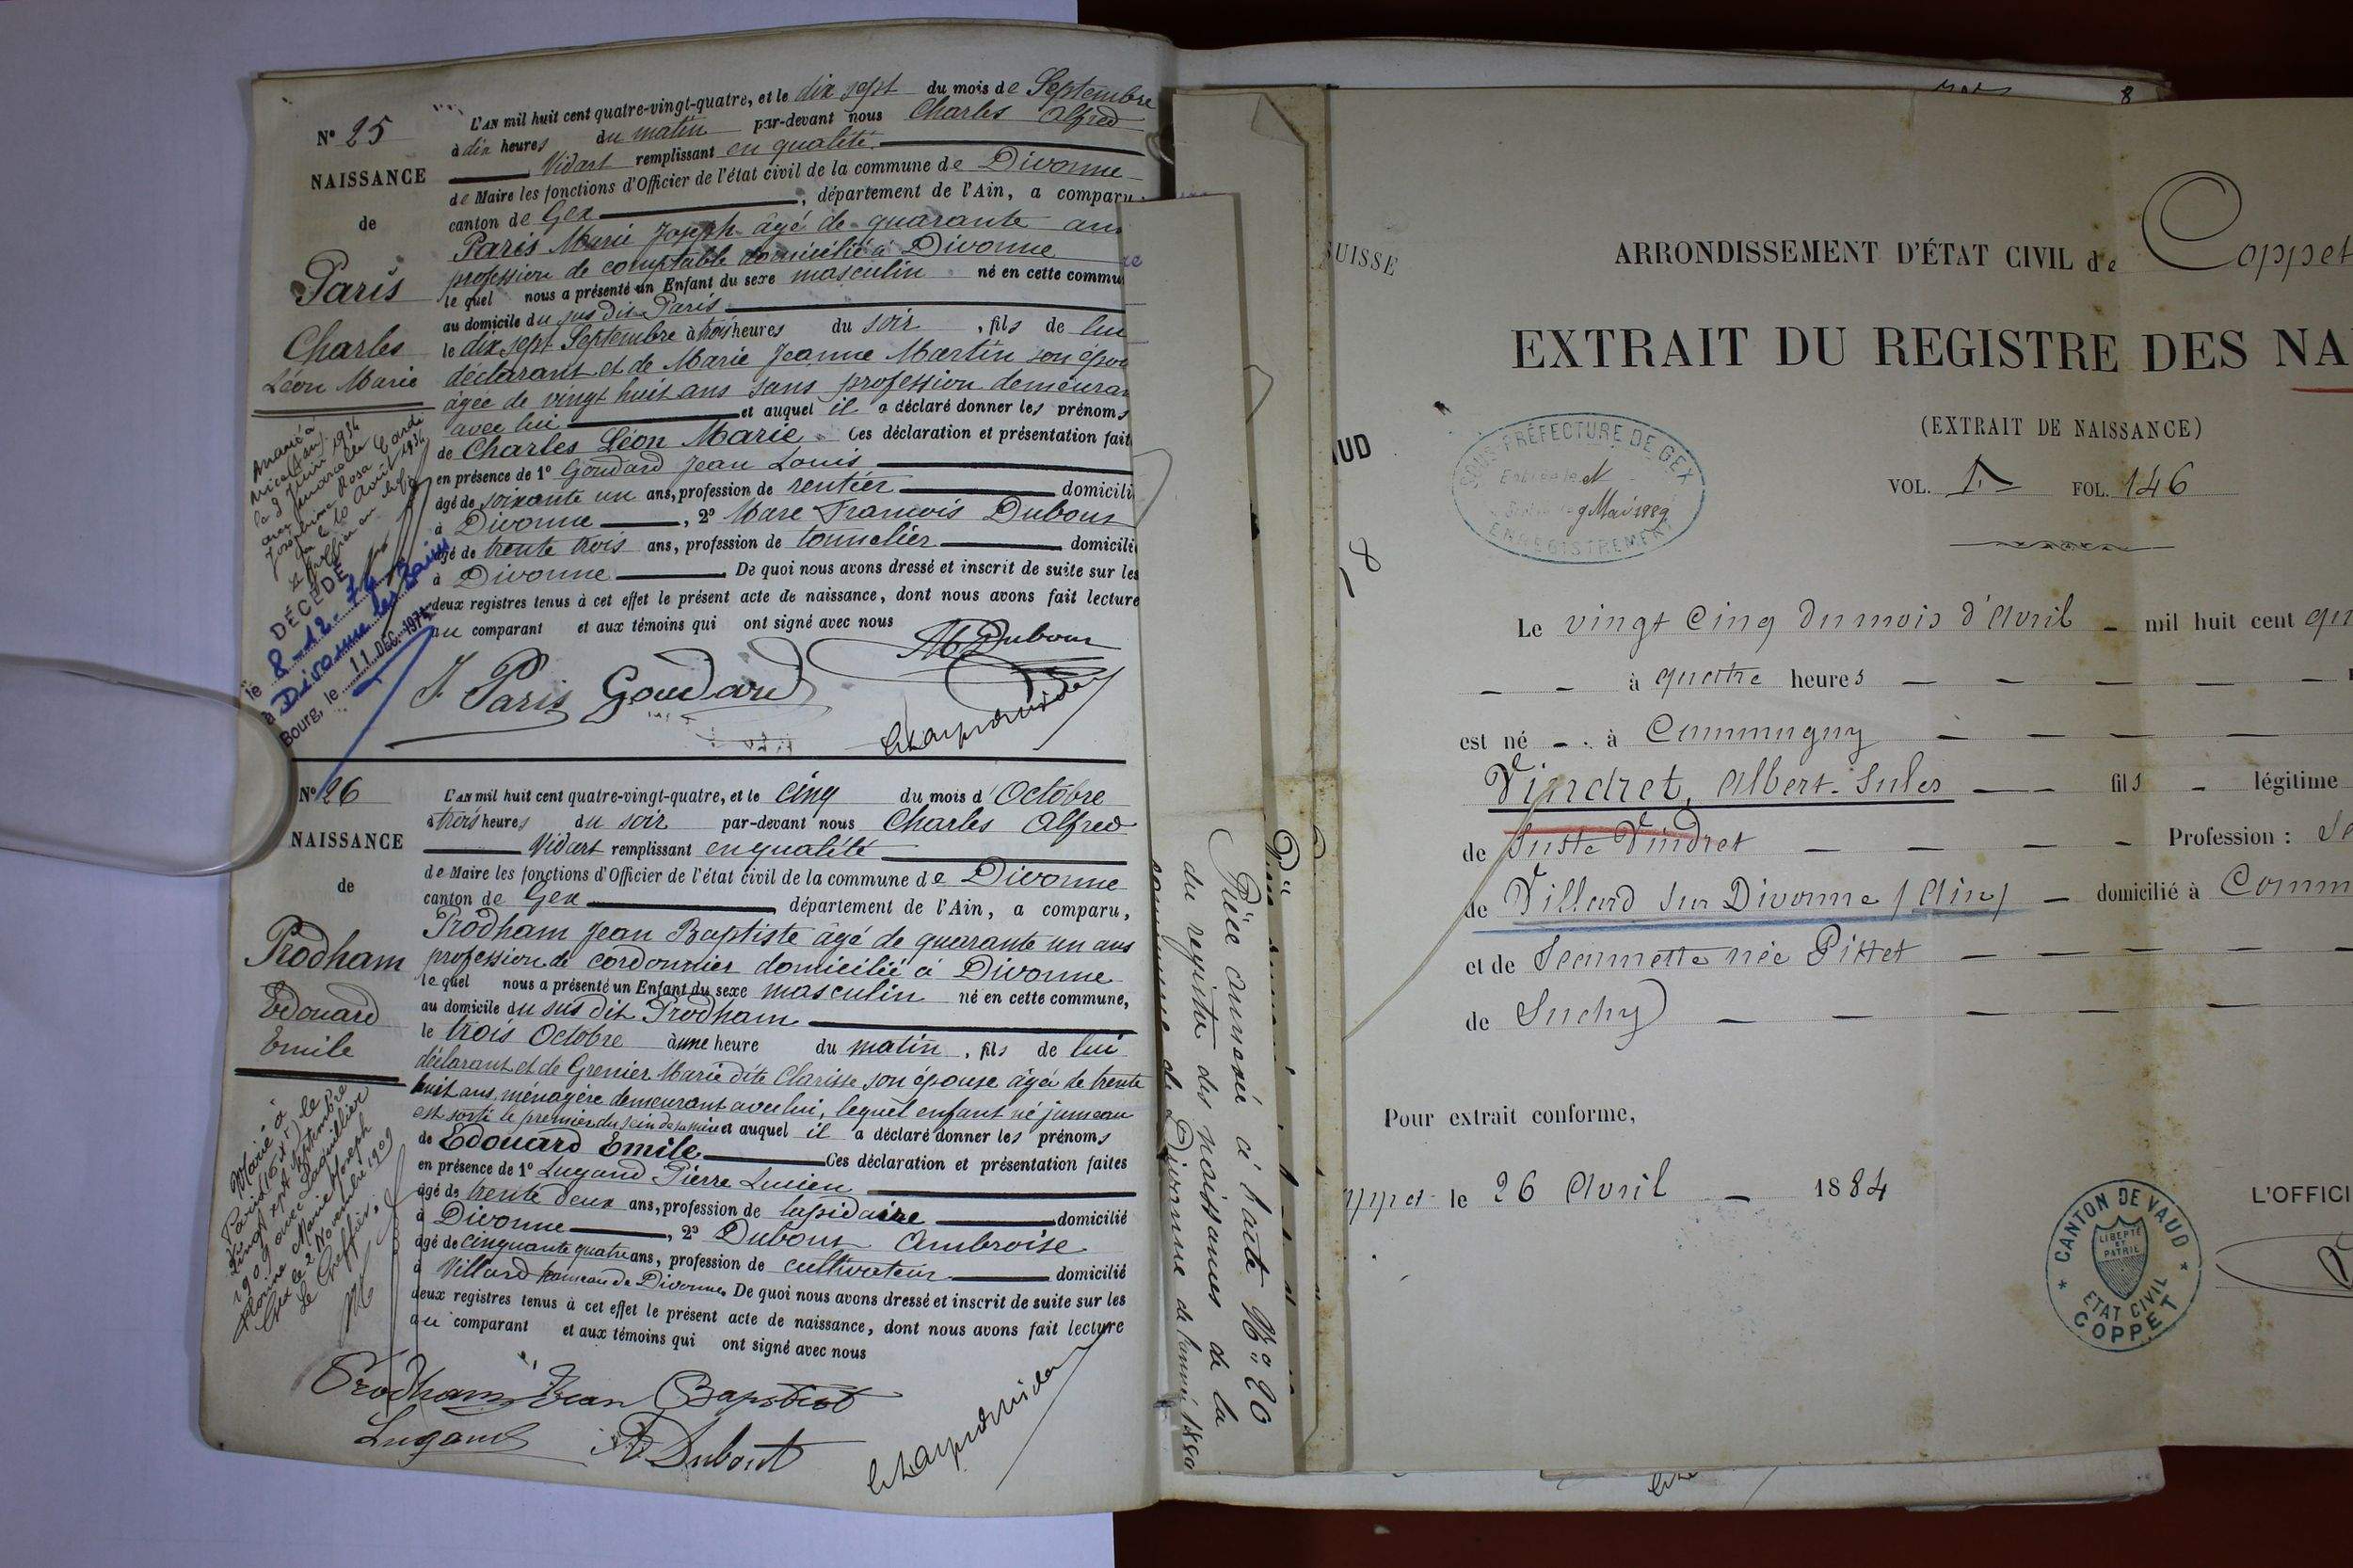 N° 25
NAISSANCE
de
Paris
Charles
Léon Marie
Marié à
Nice (a.m)
le 9 Juin 1934
DÉCÉDÉ
le 8-12-74
à Divonne les Bains
Bourg, le 11 DEC. 1974
L'AN mil huit cent quatre-vingt-quatre, et le dix sept du mois de Septembre
à dix heures du matin par-devant nous Charles Alfred
Vidart remplissant en qualité
de Maire les fonctions d'Officier de l'état civil de la commune de Divonne
canton de Gex, département de l'Ain, a comparu
Paris Marie Joseph âgé de quarante ans
profession de comptable domicilié à Divonne
le quel nous a présenté un Enfant du sexe masculin né en cette commu
au domicile du sus dit Paris
le dix sept Septembre à trois heures du soir, fils de lui
déclarant et de Marie Jeanne Martin son épou
âgée de vingt huit ans sans profession demeuran
avec lui et auquel il a déclaré donner les prénoms
de Charles Léon Marie. Ces déclaration et présentation fait
en présence de 1° Goudard Jean Louis
âgé de soixante un ans, profession de rentier domicili
à Divonne, 2° Marc François Dubout
âgé de trente trois ans, profession de tonnelier domicili
à Divonne De quoi nous avons dressé et inscrit de suite sur les
deux registres tenus à cet effet le présent acte de naissance, dont nous avons fait lecture
au comparant et aux témoins qui ont signé avec nous
J Paris Goudard
N° 26
NAISSANCE
de
Prodham
Edouard
Emile
Marié à
Paris (16e Arrt) le
vingt sept Septembre
1909 avec Laquillier
Marie Joseph
Gex le 2 Novembre 1909
Le Greffier.
L'AN mil huit cent quatre-vingt-quatre, et le cinq du mois d'Octobre
à trois heures du soir par-devant nous Charles Alfred
Vidart remplissant en qualité
de Maire les fonctions d'Officier de l'état civil de la commune de Divonne
canton de Gex département de l'Ain, a comparu,
Prodham Jean Baptiste âgé de quarante un ans
profession de cordonnier domicilié à Divonne
le quel nous a présenté un Enfant du sexe masculin né en cette commune,
au domicile du sus dit Prodham
le trois Octobre à une heure du matin, fils de lui
déclarant et de Grenier Marie dite Clarisse son épouse âgée de trente
huit ans, ménagère demeurant avec lui, lequel enfant né jumeau
est sorti le premier du sein de sa mère et auquel il a déclaré donner les prénoms
de Edouard Emile Ces déclaration et présentation faites
en présence de 1° Lugand Pierre Lucien
âgé de trente deux ans, profession de lapidaire domicilié
à Divonne, 2° Dubout Ambroise
âgé de cinquante quatre ans, profession de cultivateur domicilié
à Villard hameau de Divonne. De quoi nous avons dressé et inscrit de suite sur les
deux registres tenus à cet effet le présent acte de naissance, dont nous avons fait lecture
au comparant et aux témoins qui ont signé avec nous
Prodham Jean Baptist
Lugand A Dubout
Pièce annexée à l'acte N° 20
du registre des naissances de la
commune de Divonne de l'année 1884
8
SUISSE
UD
ARRONDISSEMENT D'ÉTAT CIVIL de Coppet
EXTRAIT DU REGISTRE DES NA
(EXTRAIT DE NAISSANCE)
SOUS-PRÉFECTURE DE GEX
ENREGISTREMENT
VOL. I FOL. 146
Le vingt cinq du mois d'avril mil huit cent qu
à quatre heures
est né à Commugny
Vindret, Albert-Jules fils légitime
de Juste Vindret Profession :
de Villard sur Divonne (Ain) domicilié à Comm
et de Jeannette née Pittet
de Suchy
Pour extrait conforme,
ppet le 26 Avril 1884
CANTON DE VAUD
LIBERTÉ
ET
PATRIE
ETAT CIVIL
COPPET
L'OFFICI